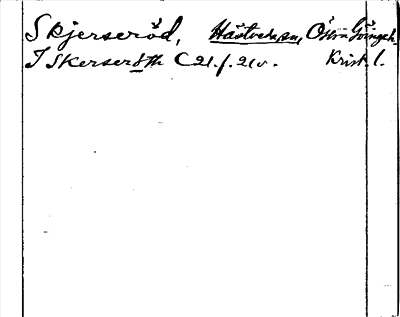 Skjerseröd, Hästveda sn, Östra Göinge h.
I Skerseröth C 21. f. 21v. Krist. l.